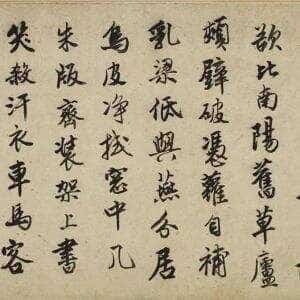 欲比南陽舊草廬
頹壁破憑蘿自補
乳梁低與燕分居
烏皮净拭窓中几
朱版齊裝架上書
笑殺汗衣車馬客